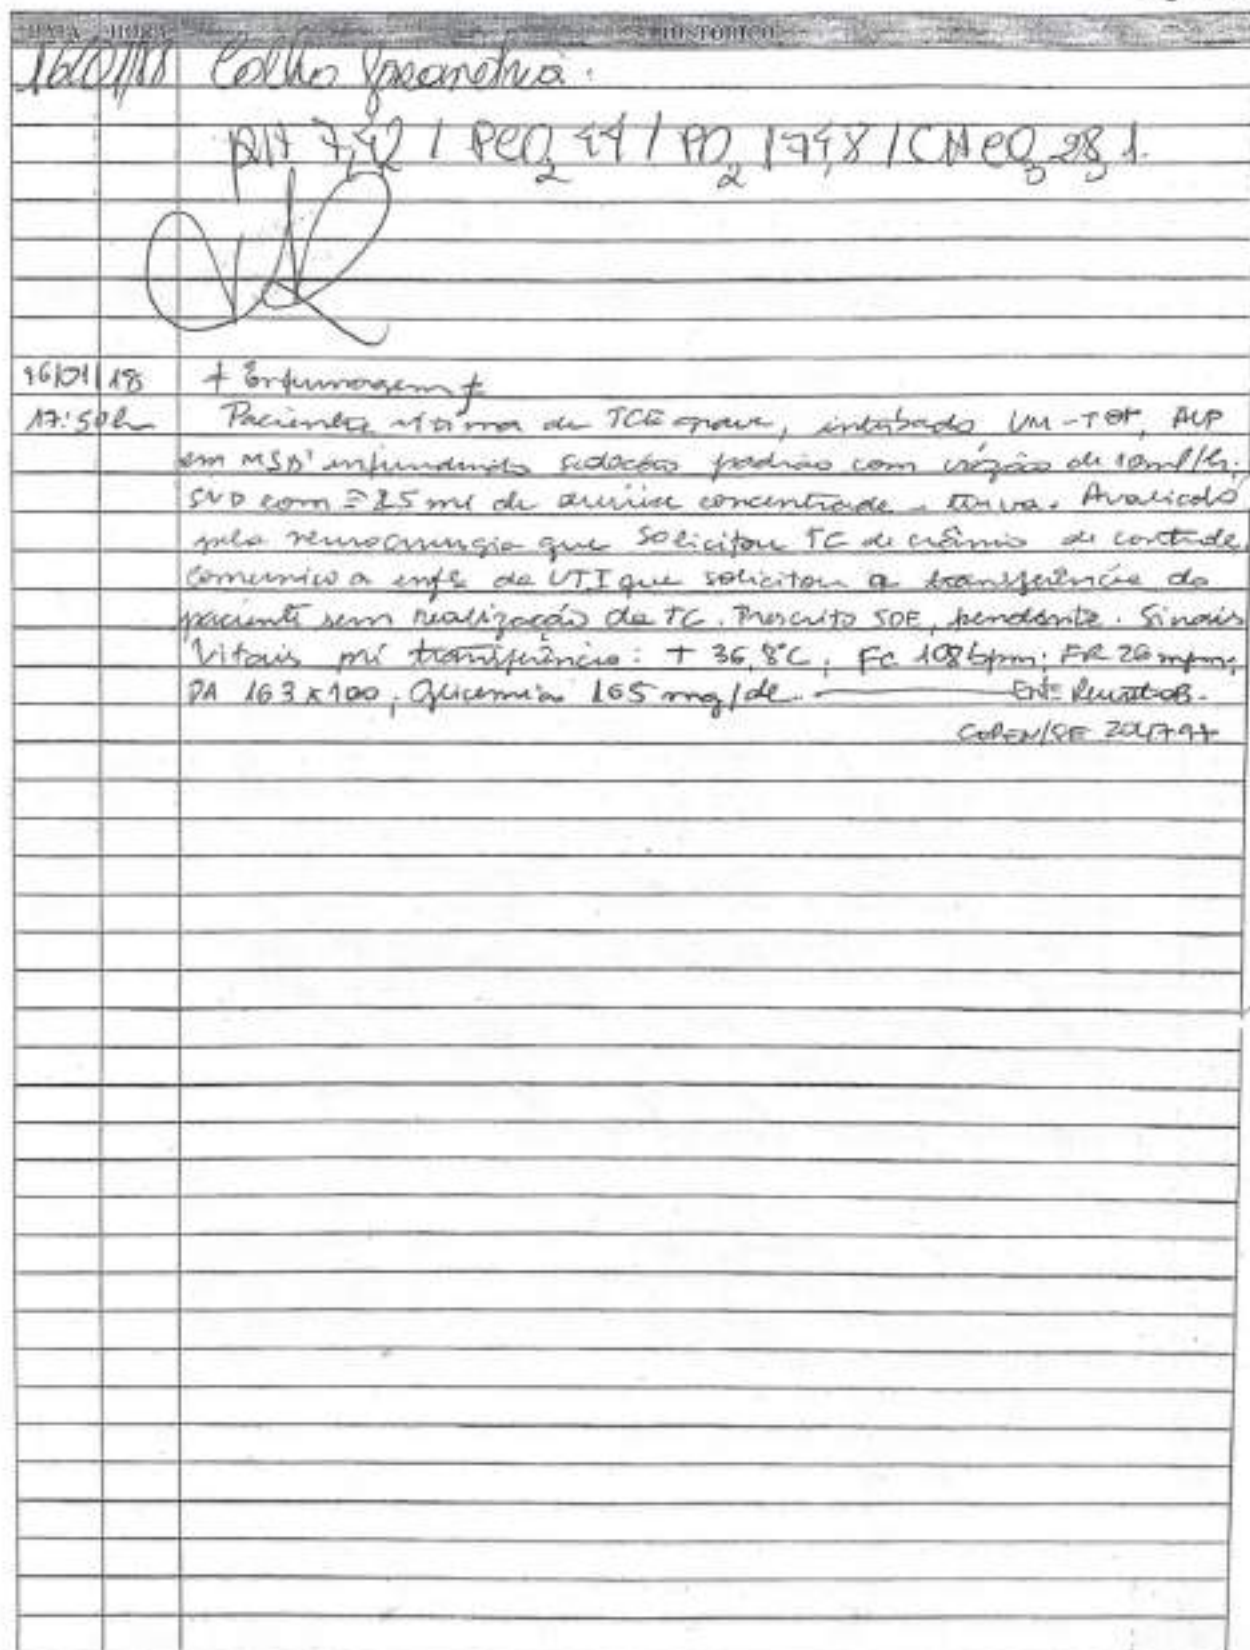 DATA HORA HISTÓRICO
16/01/18 Colho gasometria.
pH 7,42 / PCO2 44 / PO2 174,8 / CHCO3 28,1.
16/01/18 + Enfermagem +
17:50h Paciente vítima de TCE grave, intubado VM-TOT, AVP
em MSD infundindo sedação padrão com vazão de 10ml/h.
SVD com 25 ml de diurese concentrada e turva. Avaliado
pela neurocirurgia que solicitou TC de crânio de controle,
comunico a enfª da UTI que solicitou a transferência do
paciente sem realização da TC. Prescrito SOE, pendente. Sinais
Vitais pré transferência: T 36,8°C, FC 108 bpm; FR 26 mpm;
PA 163x100, Glicemia 165 mg/dl. Enfª
COREN/SE